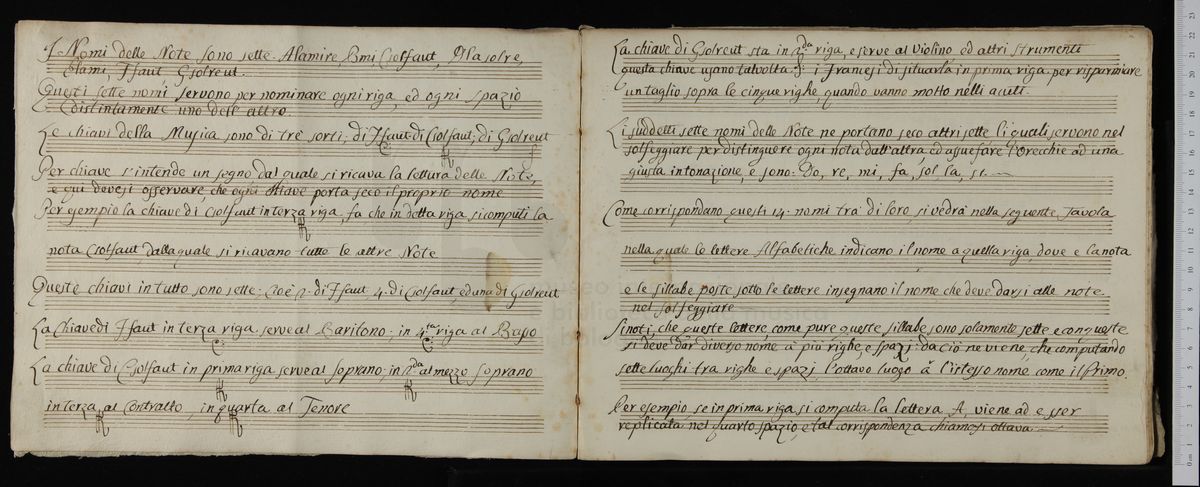 I Nomi delle Note sono sette. Alamire, Bmi, Csolfaut, Dlasolre,
Elami, Ffaut Gsolreut.
Questi sette nomi servono per nominare ogni riga, ed ogni spazio
distintamente uno dell' altro.
Le chiavi della Musica sono di tre sorti; di Ffaut di Csolfaut, di Gsolreut
Per chiave s'intende un segno dal quale si ricava la lettura delle Note,
e qui devesi osservare, che ogni chiave porta seco il proprio nome
Per esempio la chiave di Csolfaut in terza riga, fa che in detta riga si computi la
nota Csolfaut, dalla quale si ricavano tutte le altre Note
Queste chiavi in tutto sono sette; cioè 2. di Ffaut 4. di Csolfaut, ed una di Gsolreut
La Chiave di Ffaut in terza riga serve al Baritono; in 4.ta riga al Basso
La chiave di Csolfaut in prima riga serve al soprano; in 2.da al mezzo soprano
in terza al Contralto, in quarta al Tenore
La chiave di Gsolreut sta in 2.da riga, e serve al Violino ed altri strumenti
questa chiave usano talvolta i Francesi di situarla in prima riga per risparmiare
un taglio sopra le cinque righe quando vanno molto nelli acuti.
Li suddetti sette nomi delle Note ne portano seco altri sette li quali servono nel
solfeggiare per distinguere ogni nota dall'altra, ed assuefare l'orecchie ad una
giusta intonazione, e sono: Do, re, mi, fa, sol la, si.
Come corrispondano questi 14. nomi tra di loro si vedrà nella seguente Tavola
nella quale le lettere Alfabetiche indicano il nome a quella riga, dove e la nota
e le sillabe poste sotto le lettere insegnano il nome che deve darsi alle note
nel solfeggiare
Si noti, che queste lettere, come pure queste sillabe sono solamente sette e con queste
si deve dar diverso nome à più righe, e spazj: da ciò ne viene, che computando
sette luoghi tra righe e spazj, l'ottavo luogo à l'istesso nome come il Primo.
Per esempio, se in prima riga si computa la lettera A, viene ad esser
replicata nel quarto spazio, e tal corrispondenza chiamasi ottava